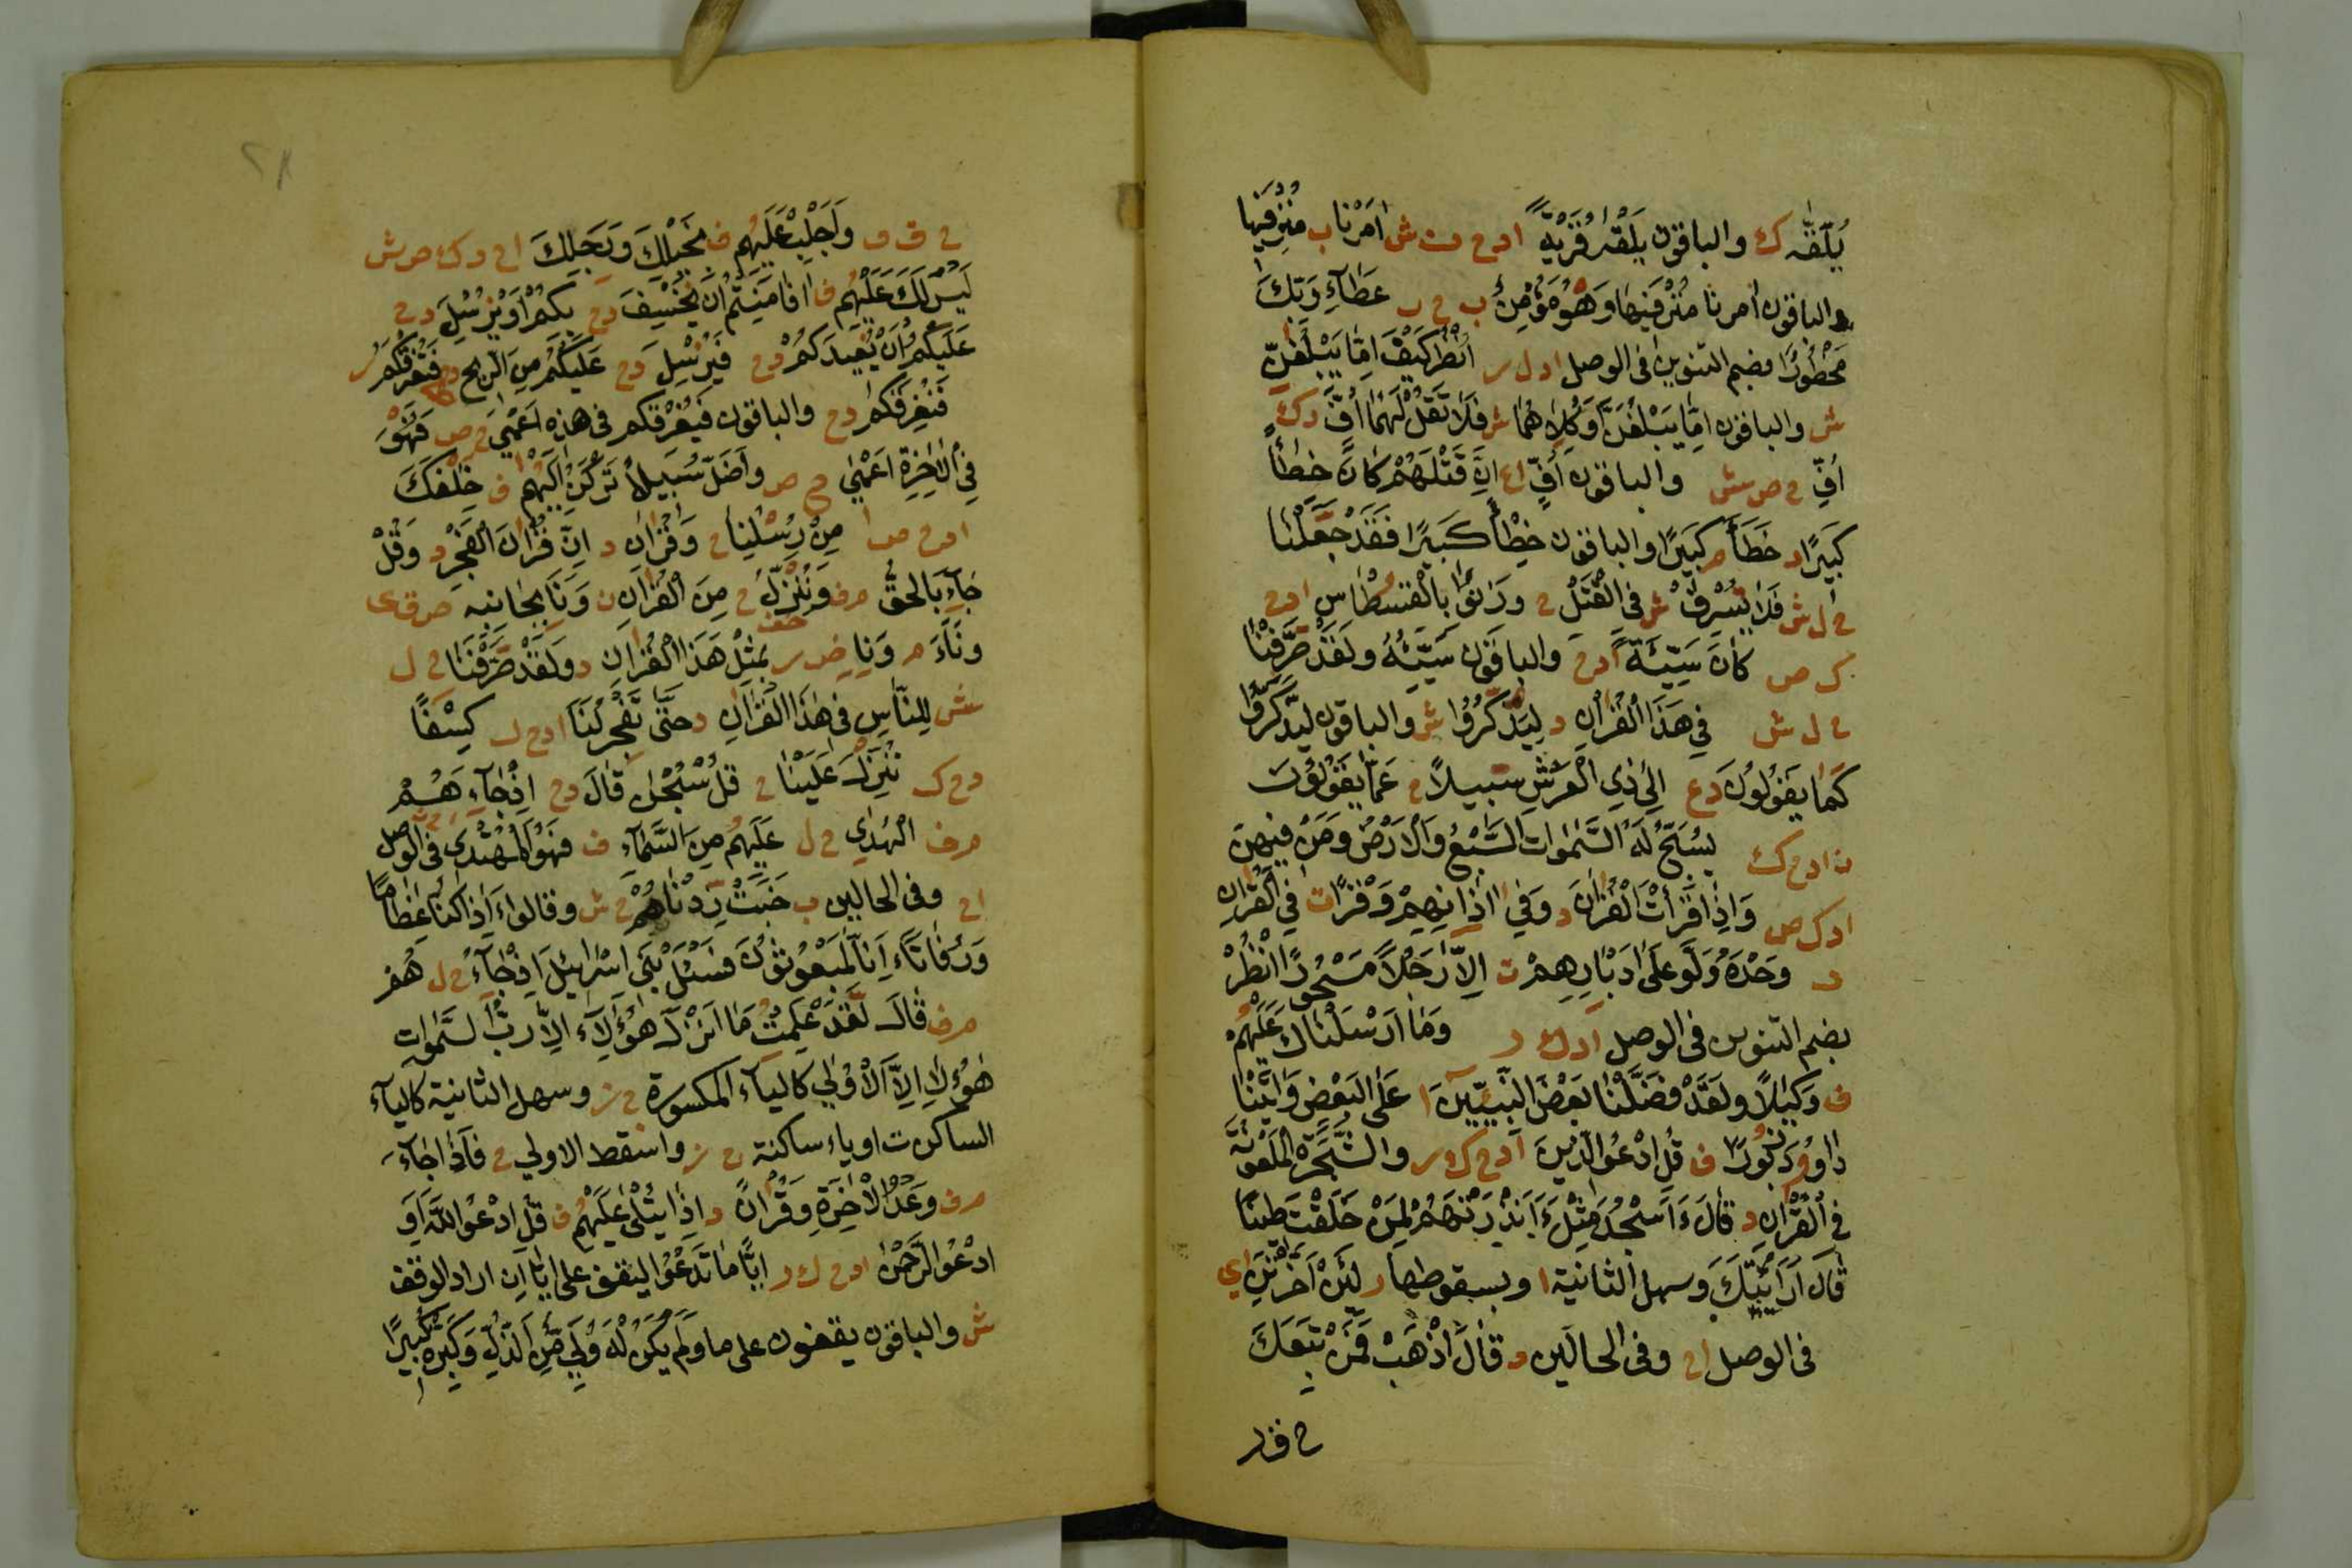 يُلَقّٰهُ ك والباقون يَلْقٰهُ قُرْيَةً ادح ف ش اَمَرْنا ب مُتْرَفِيهَا
والباقون امرنا مُتْرَفِيهَا وَهُوَ مُؤْمِنٌ ب ح ر عَطَآءِ رَبِّكَ
مَحْظُورًا بضم التنوين فى الوصل ا د ل ر اُنْظُرْ كَيْفَ اِمَّا يَبْلُغَنَّ
ش والباقون اِمَّا يَبْلُغَنَّ اَوْ كِلَاهُمَا ش فَلَا تَقُلْ لَهُمَا اُفَّ د ك
اُفِّ ح ص ش والباقون اُفٍّ ا ع اِنَّ قَتْلَهُمْ كَانَ خِطْأً
كَبِيرًا د خَطَأً م كَبِيرًا والباقون خِطْأً كَبِيرًا فَقَدْ جَعَلْنَا
ح ل ش فَلَا تُسْرِفْ ش فِى الْقَتْلِ ح وَزِنُوا بِالْقُسْطَاسِ ا د ح
ك ص كَانَ سَيِّئَةً ا د ح والباقون سَيِّئُهُ وَلَقَدْ صَرَّفْنَا
ح ل ش فِى هَذَا الْقُرْاٰنِ د لِيَذْكُرُوا ش والباقون لِيَذَّكَّرُوا
كَمَا يَقُولُونَ د ع اِلٰى ذِى الْعَرْشِ سَبِيلًا ح عَمَّا يَقُولُونَ
ن ا د ح ك يُسَبِّحُ لَهُ السَّمٰوَاتُ السَّبْعُ وَالْاَرْضُ وَمَنْ فِيهِنَّ
ا د ك ص وَاِذَا قَرَأْتَ الْقُرْاٰنَ د وَفِى اٰذَانِهِمْ وَقْرًا ت فِى الْقُرْاٰنِ
د وَحْدَهُ وَلَّوْ عَلٰى اَدْبَارِهِمْ ت اِلَّا رَجُلًا مَسْحُورًا انْظُرْ
بضم التنوين فى الوصل ا د ل ر وَمَا اَرْسَلْنَاكَ عَلَيْهُمْ
ف وَكِيلًا وَلَقَدْ فَضَّلْنَا بَعْضَ النَّبِيِّينَ ا عَلٰى الْبَعْضِ وَاٰتَيْنَا
دَاوُدَ زُبُورًا ف قُلِ ادْعُوا الَّذِينَ ا د ح ك ر والشَّجَرَةَ الْمَلْعُونَةَ
فِى الْقُرْاٰنِ د قَالَ ءَاَسْجُدُ مِثْلَ ءَاَنْذَرْتَهُمْ لِمَنْ خَلَقْتَ طِينًا
قَالَ اَرَاَيْتَكَ وسهل الثانية ا وبسقوطها ر لَئِنْ اَخَّرْتَنِ اى
فى الوصل ا ح وفى الحالين د قَالَ اذْهَبْ فَمَنْ تَبِعَكَ
ح ق ر
ح ق ر وَاَجْلِبْ عَلَيْهُمْ ف بِخَيْلِكَ وَرَجِلِكَ ا ح د ك ص ش
لَيْسَ لَكَ عَلَيْهُمْ ف اَفَاَمِنْتُمْ اَنْ نَخْسِفَ د ح بِكُمْ اَوْ نُرْسِلَ د ح
عَلَيْكُمْ اَنْ نُعِيدَكُمْ د ح فَنُرْسِلَ د ح عَلَيْكُمْ مِنَ الرِّيحِ فَنُغْرِقَكُمْ
فَنُغْرِقَكُمْ د ح والباقون فَيُغْرِقَكُمْ فى هذه اَعْمٰى ح ص فَهُوَ
فِى الْاٰخِرَةِ اَعْمٰى ح ص وَاَضَلُّ سَبِيلًا تَرْكَنُ اِلَيْهُمْ ف خَلْفَكَ
ا د ح ص مِنْ رُسْلِنَا ح وَقُرْاٰنَ د اِنَّ قُرْاٰنَ الْفَجْرِ د وَقُلْ
جَآءَ بَالحَقُّ م ف وَنُنْزِلُ ح مِنَ الْقُرْاٰنِ وَنَاٰ بِجَانِبِهِ ص ق ى
وَنَآءَ م وَنِاٰى ض ر بِمِثْلِ هَذَا الْقُرْاٰنِ د وَلَقَدْ صَرَّفْنَا ح ل
ش لِلنَّاسِ فِى هَذَا الْقُرْاٰنِ د حَتّٰى تُفَجِّرَ لَنَا ا د ح ل كِسْفًا
د ح ك نُنْزِلَ عَلَيْنَا ح قُلْ سُبْحٰنَ قَالَ د ح اِذْ جَآءَهُمْ
م ف الْهُدٰى ح ل عَلَيْهُمْ مِنَ السَّمَآءِ ف فَهُوَ الْمُهْتَدِى فى الوصل
ا ح وفى الحالين ب خَبَتْ زِدْنَاهُمْ ح ش وَقَالُوا ءَاِذَا كُنَّا عِظَامًا
وَرُفَاتًا ءَاِنَّا لَمَبْعُوثُونَ فَسْئَلْ بَنِى اِسْرَائِيلَ اِذْ جَآءَ ح ل هُمْ
م ف قَالَ لَقَدْ عَلِمْتُ مَا اَنْزَلَ هٰؤُلَآءِ اِلَّا رَبُّ السَّمٰوَاتِ
هٰؤُلَا اِلَّا الْاُولٰى كالياء المكسورة ح ز وسهل الثانية كالياء
الساكن ت اوياء ساكنة ح ز واسقط الاولى ح فَاِذَا جَآءَ
م ف وَعْدُ الْاٰخِرَةِ وَقُرْاٰنًا د اِذَا يُتْلٰى عَلَيْهُمْ ف قُلِ ادْعُوا اللّٰهَ اَوِ
ادْعُوا الرَّحْمٰنَ ا د ح ل ر اَيًّا مَا تَدْعُوا ليقف على ايًّا ان اراد الوقف
ش والباقون يقفون على ما وَلَمْ يَكُنْ لَهُ وَلِىٌّ مِنَ الذُّلِّ وَكَبِّرْهُ تَكْبِيرًا